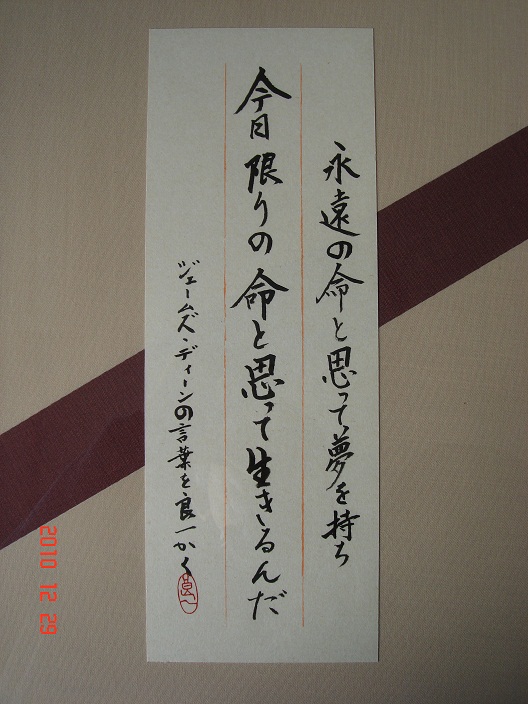 永遠の命と思って夢を持ち
今日限りの命と思って生きるんだ
ジェームズ・ディーンの言葉を良一かく
2010 12 29